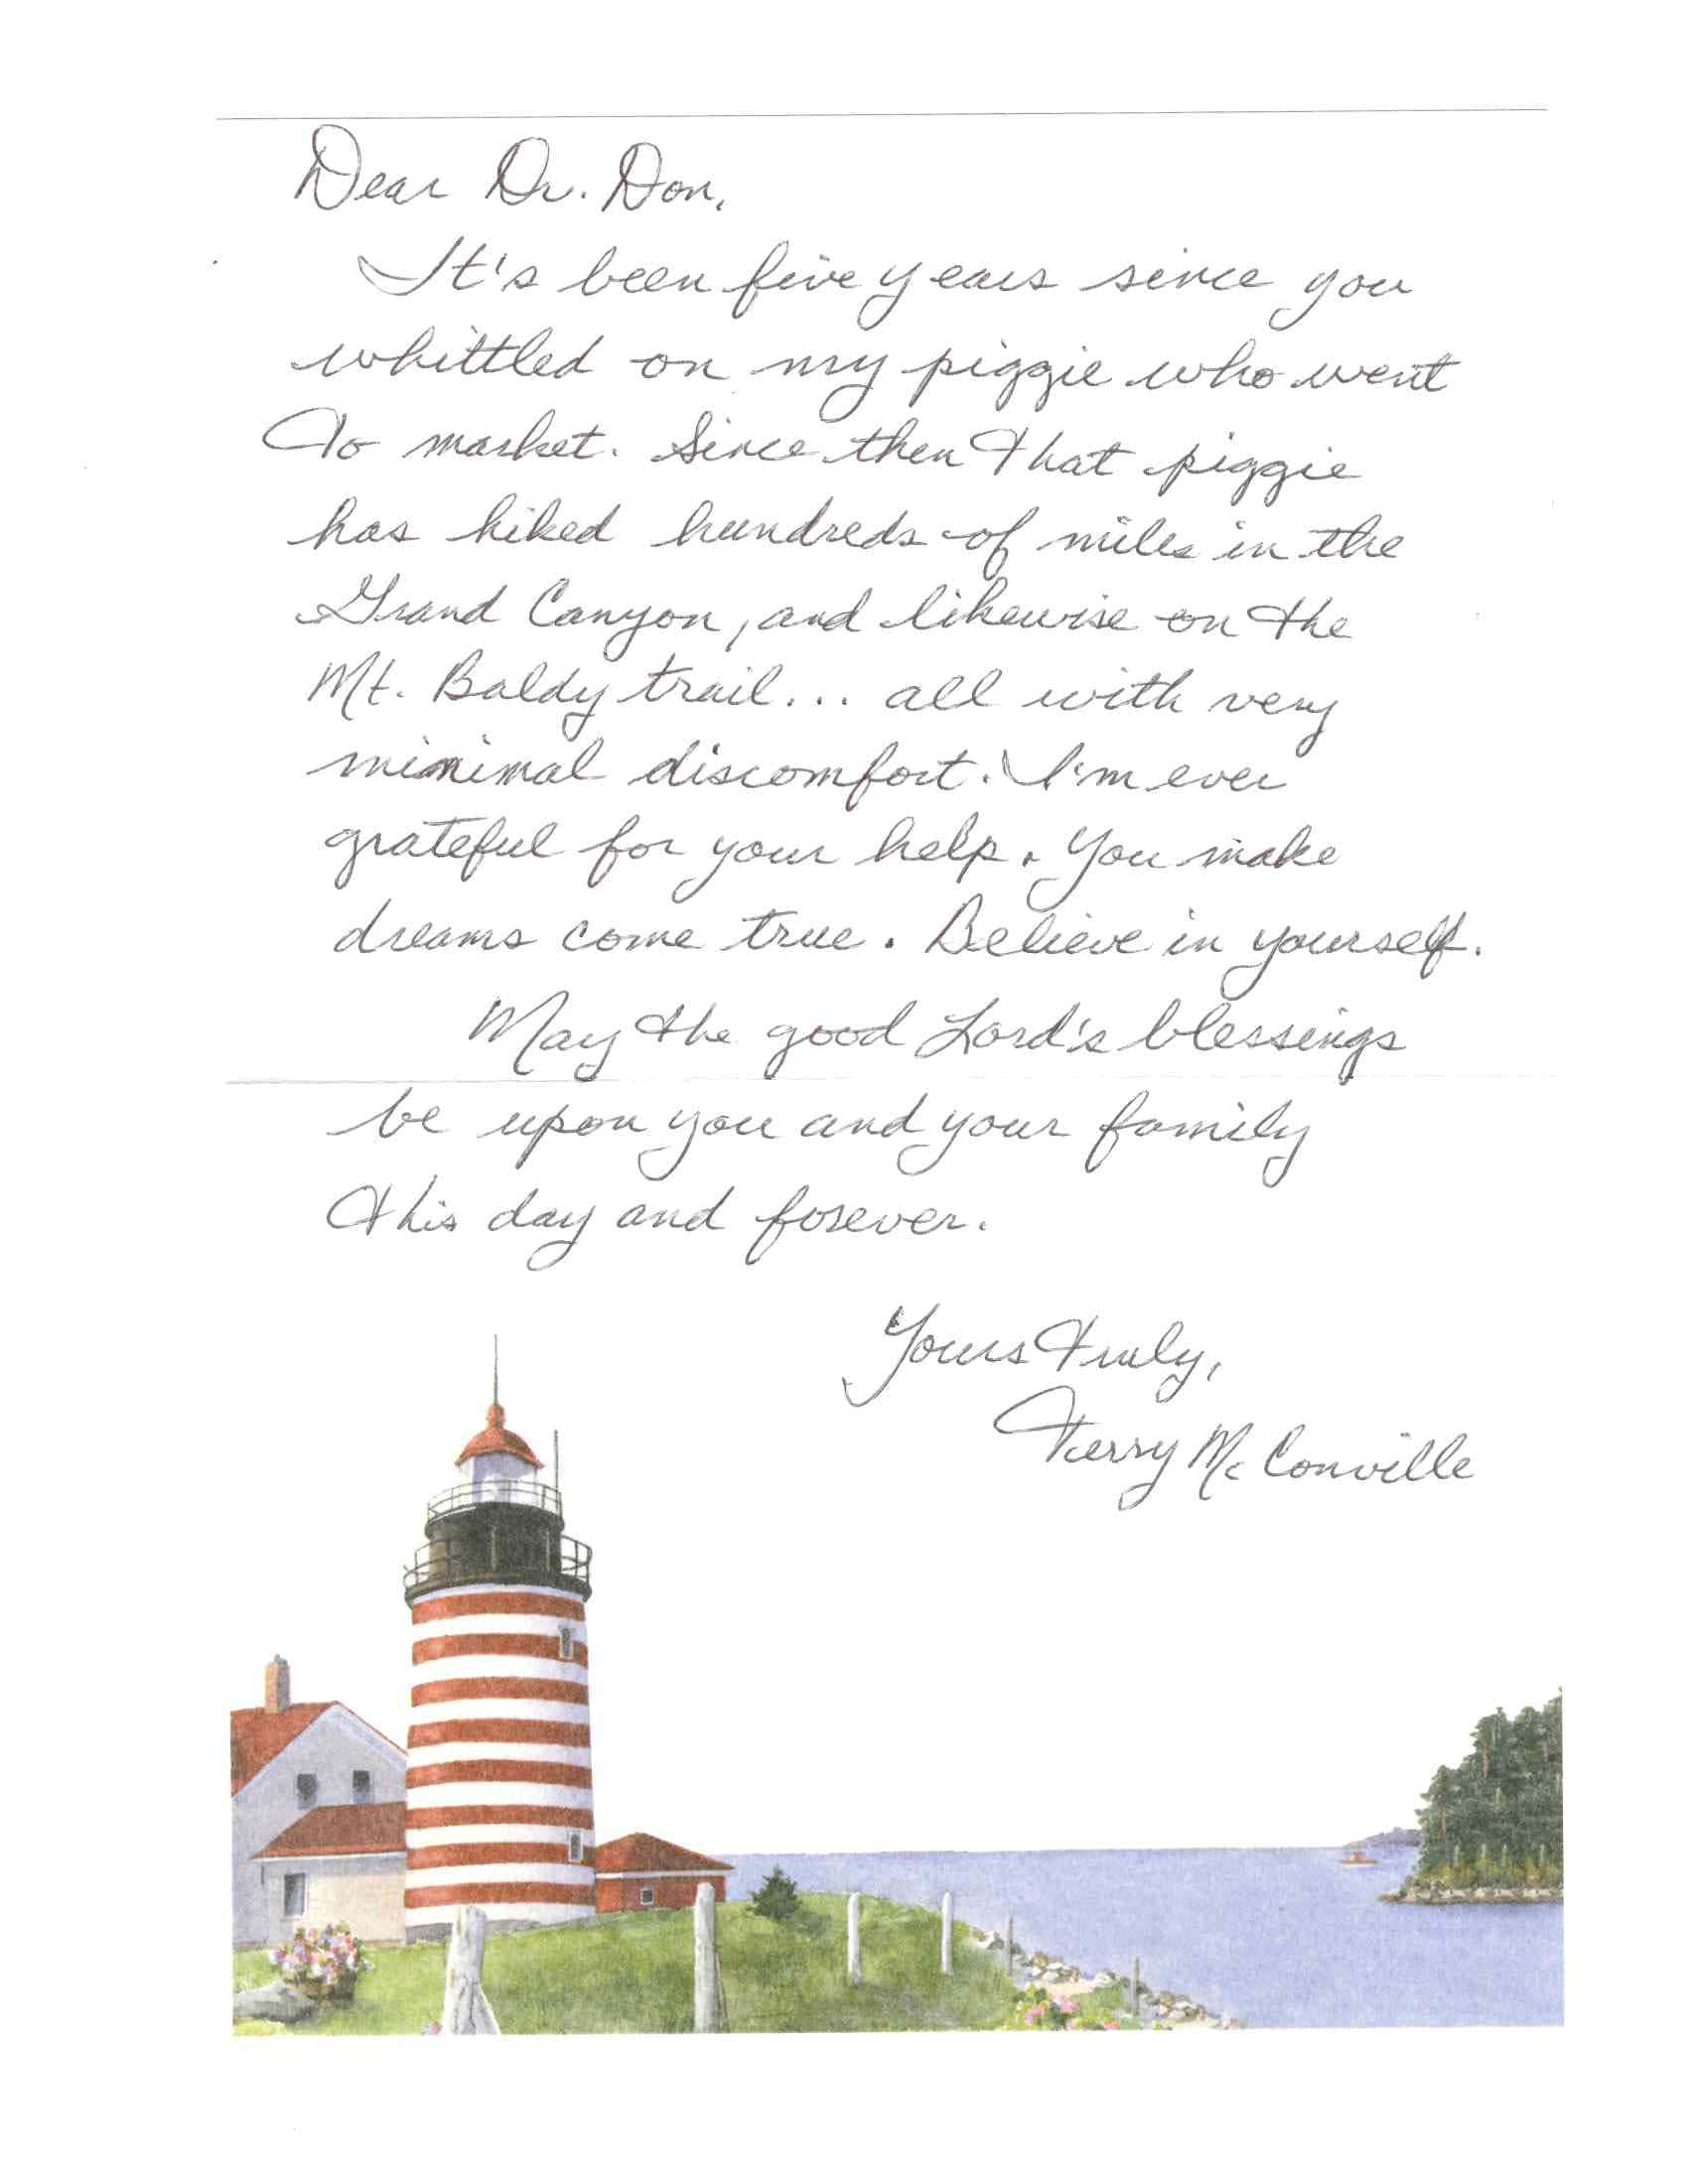 Dear Dr. Don,
It's been five years since you
whittled on my piggie who went
to market. Since then that piggie
has hiked hundreds of miles in the
Grand Canyon, and likewise on the
Mt. Baldy trail... all with very
minimal discomfort. I'm ever
grateful for your help. You make
dreams come true. Believe in yourself.
May the good Lord's blessings
be upon you and your family
this day and forever.
Yours truly,
Terry McConville